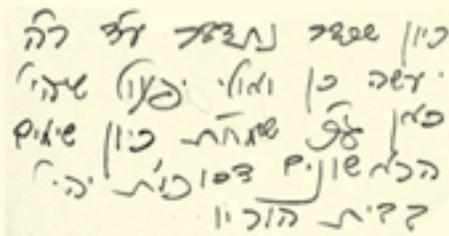 כיון שכבר נתדבר עד ר"ה
יעשה כן ואולי יפעול שיהי'
כאן עכ"פ שמח"ת כיון שימים
הראשונים דסוכות יהי'
בבית הוריו